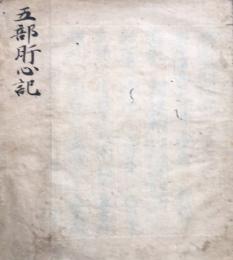 五部肝心記